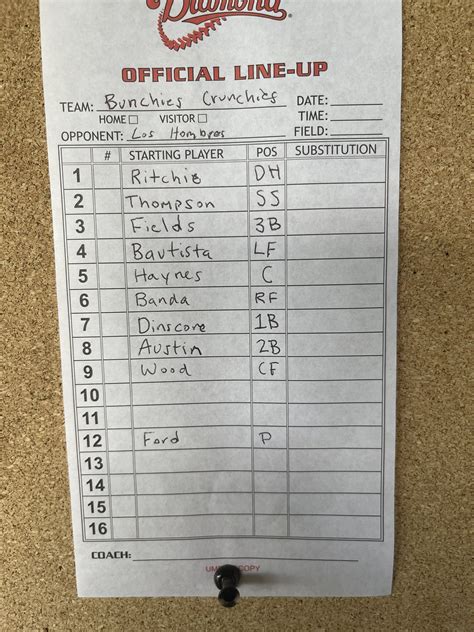 Diamond
OFFICIAL LINE-UP
TEAM: Bunchies Crunchies DATE:
HOME VISITOR TIME:
OPPONENT: Los Hombres FIELD:
# STARTING PLAYER POS SUBSTITUTION
1 Ritchie DH
2 Thompson SS
3 Fields 3B
4 Bautista LF
5 Haynes C
6 Banda RF
7 Dinscore 1B
8 Austin 2B
9 Wood CF
10
11
12 Ford P
13
14
15
16
COACH:
COPY